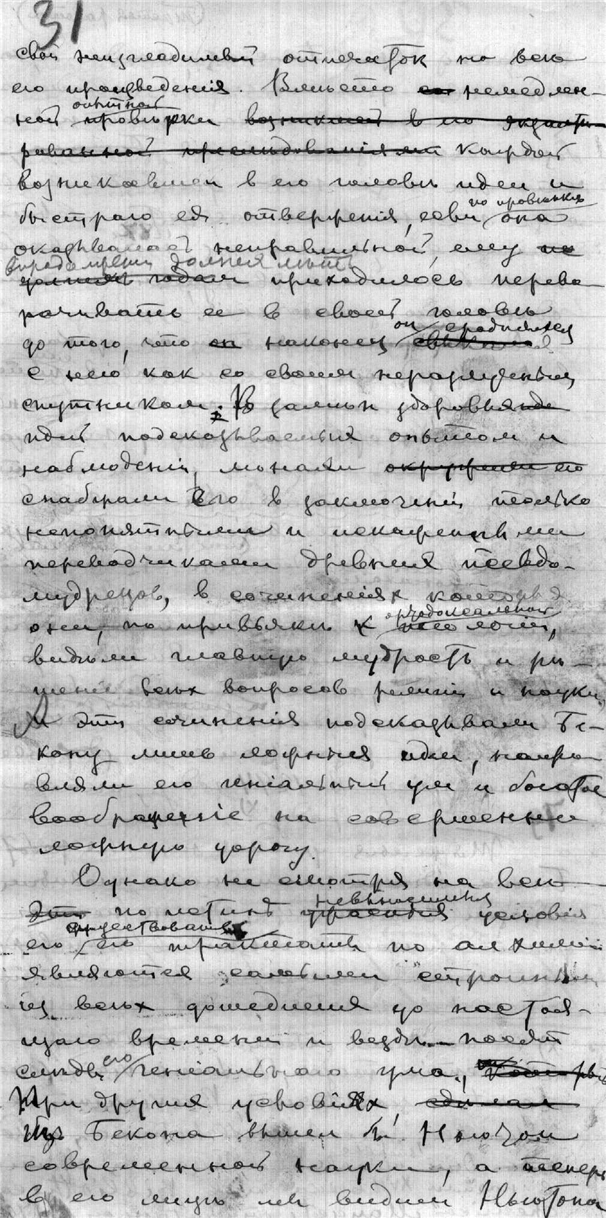 31
свой неизгладимый отпечатокъ на всѣ
его произведенія. Вмѣсто немедлен-
ной опытной провѣрки возникшей в
каждой
возникавшей в его головѣ идеи и
быстраго ея отверженія, если по провѣркѣ она
оказывалась неправильной, ему по
впродолженіи должна лѣтъ
долгимъ годам приходилось перево-
рачивать ее в своей головѣ
до того, что он наконец сроднился
с нею как со своим неразлучным
спутником. В замѣн здоровыя
идей подсказываемыя опытом и
наблюденіем, монахи окружали его
снабжали его в заключеніи только
непонятными и искаженными
переводчиками древния псевдо-
мудрецов, в сочиненіях которыя
они, по привычкѣ к ортодоксальной
видѣли главную мудрость и рѣ-
шеніе всѣх вопросов религіи и науки.
И эти сочиненія подсказывали Бе-
кону лишь ложныя идеи, напра-
вляли его геніальный ум и богатое
воображеніе на совершенно
ложную дорогу.
Однако не смотря на всѣ
эти по истинѣ невыносимыя условія
существованія
его его трактаты по алхиміи
являются самыми стройными
из всѣх дошедшия до настоя-
щаго времени и вездѣ носят
слѣды его геніальнаго ума.
При другия условіях,
из Бекона вышел бы Ньютон
современной науки, а теперь
в его лицѣ мы видим Ньютона